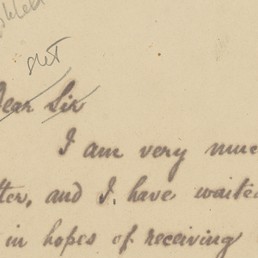 Dear Sir
I am very muc
tter, and I have waited
in hopes of receiving